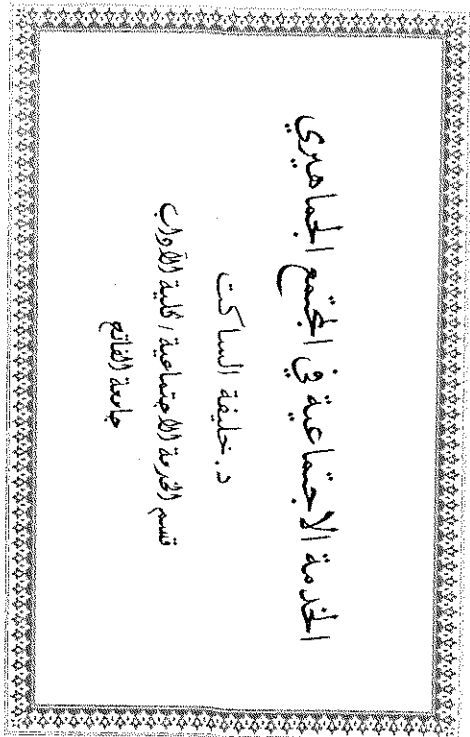 الخدمة الاجتماعية في المجتمع الجماهيري
د. خليفة الساكت
قسم الخدمة الاجتماعية / كلية الآداب
جامعة الفاتح